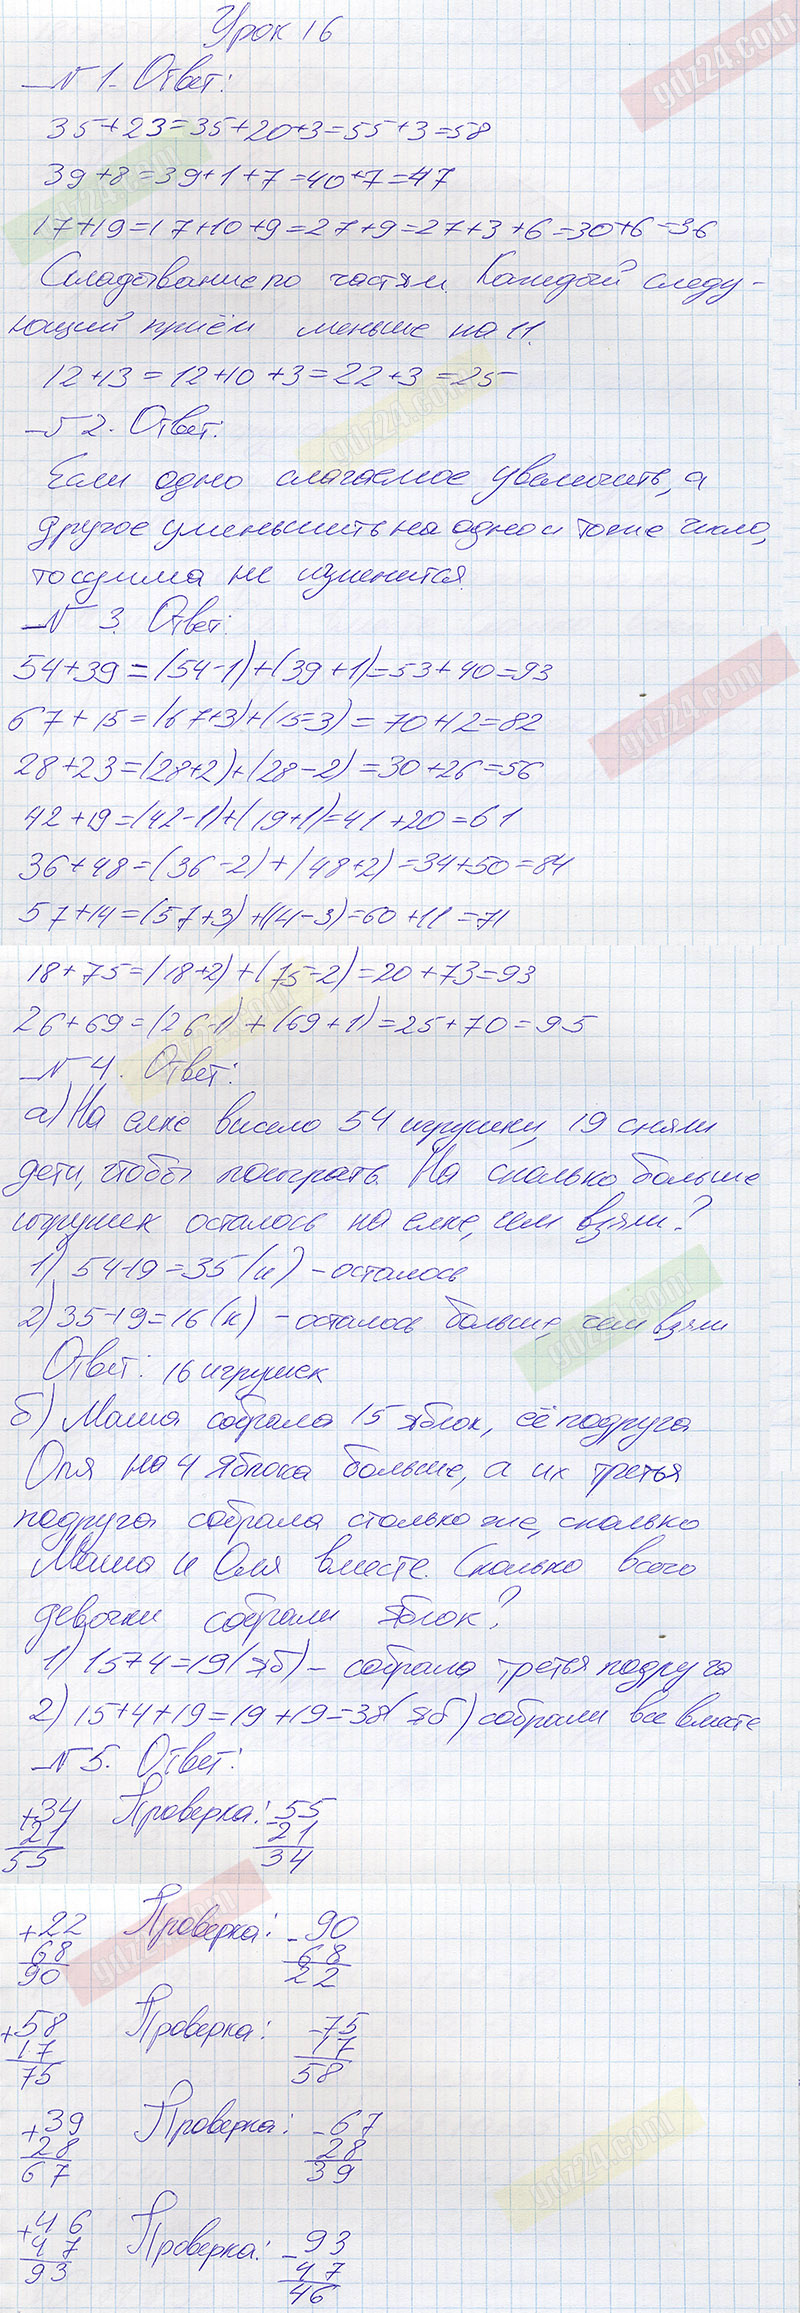 Урок 16
№ 1. Ответ:
35+23=35+20+3=55+3=58
39+8=39+1+7=40+7=47
17+19=17+10+9=27+9=27+3+6=30+6=36
Складывание по частям. Каждый следу-
ющий приём меньше на 11.
12+13=12+10+3=22+3=25
№ 2. Ответ:
Если одно слагаемое увеличить, а
другое уменьшить на одно и тоже число,
то сумма не изменится.
№ 3. Ответ:
54+39=(54-1)+(39+1)=53+40=93
67+15=(67+3)+(15-3)=70+12=82
28+23=(28+2)+(28-2)=30+26=56
42+19=(42-1)+(19+1)=41+20=61
36+48=(36-2)+(48+2)=34+50=84
57+14=(57+3)+(14-3)=60+11=71
18+75=(18+2)+(75-2)=20+73=93
26+69=(26-1)+(69+1)=25+70=95
№ 4. Ответ:
а) На елке висело 54 игрушки, 19 сняли
дети, чтобы поиграть. На сколько больше
игрушек осталось на елке, чем взяли?
1) 54-19=35 (и) - осталось
2) 35-19=16 (и) - осталось больше, чем взяли
Ответ: 16 игрушек
б) Маша собрала 15 яблок, её подруга
Оля на 4 яблока больше, а их третья
подруга собрала столько же, сколько
Маша и Оля вместе. Сколько всего
девочки собрали яблок?
1) 15+4=19 (яб) - собрала третья подруга
2) 15+4+19=19+19=38 (яб) собрали все вместе
№ 5. Ответ:
+34 Проверка: -55
21 21
55 34
+22 Проверка: -90
68 68
90 22
+58 Проверка: -75
17 17
75 58
+39 Проверка: -67
28 28
67 39
+46 Проверка: -93
47 47
93 46
gdz24.com
gdz24.com
gdz24.com
gdz24.com
gdz24.com
gdz24.com
gdz24.com
gdz24.com